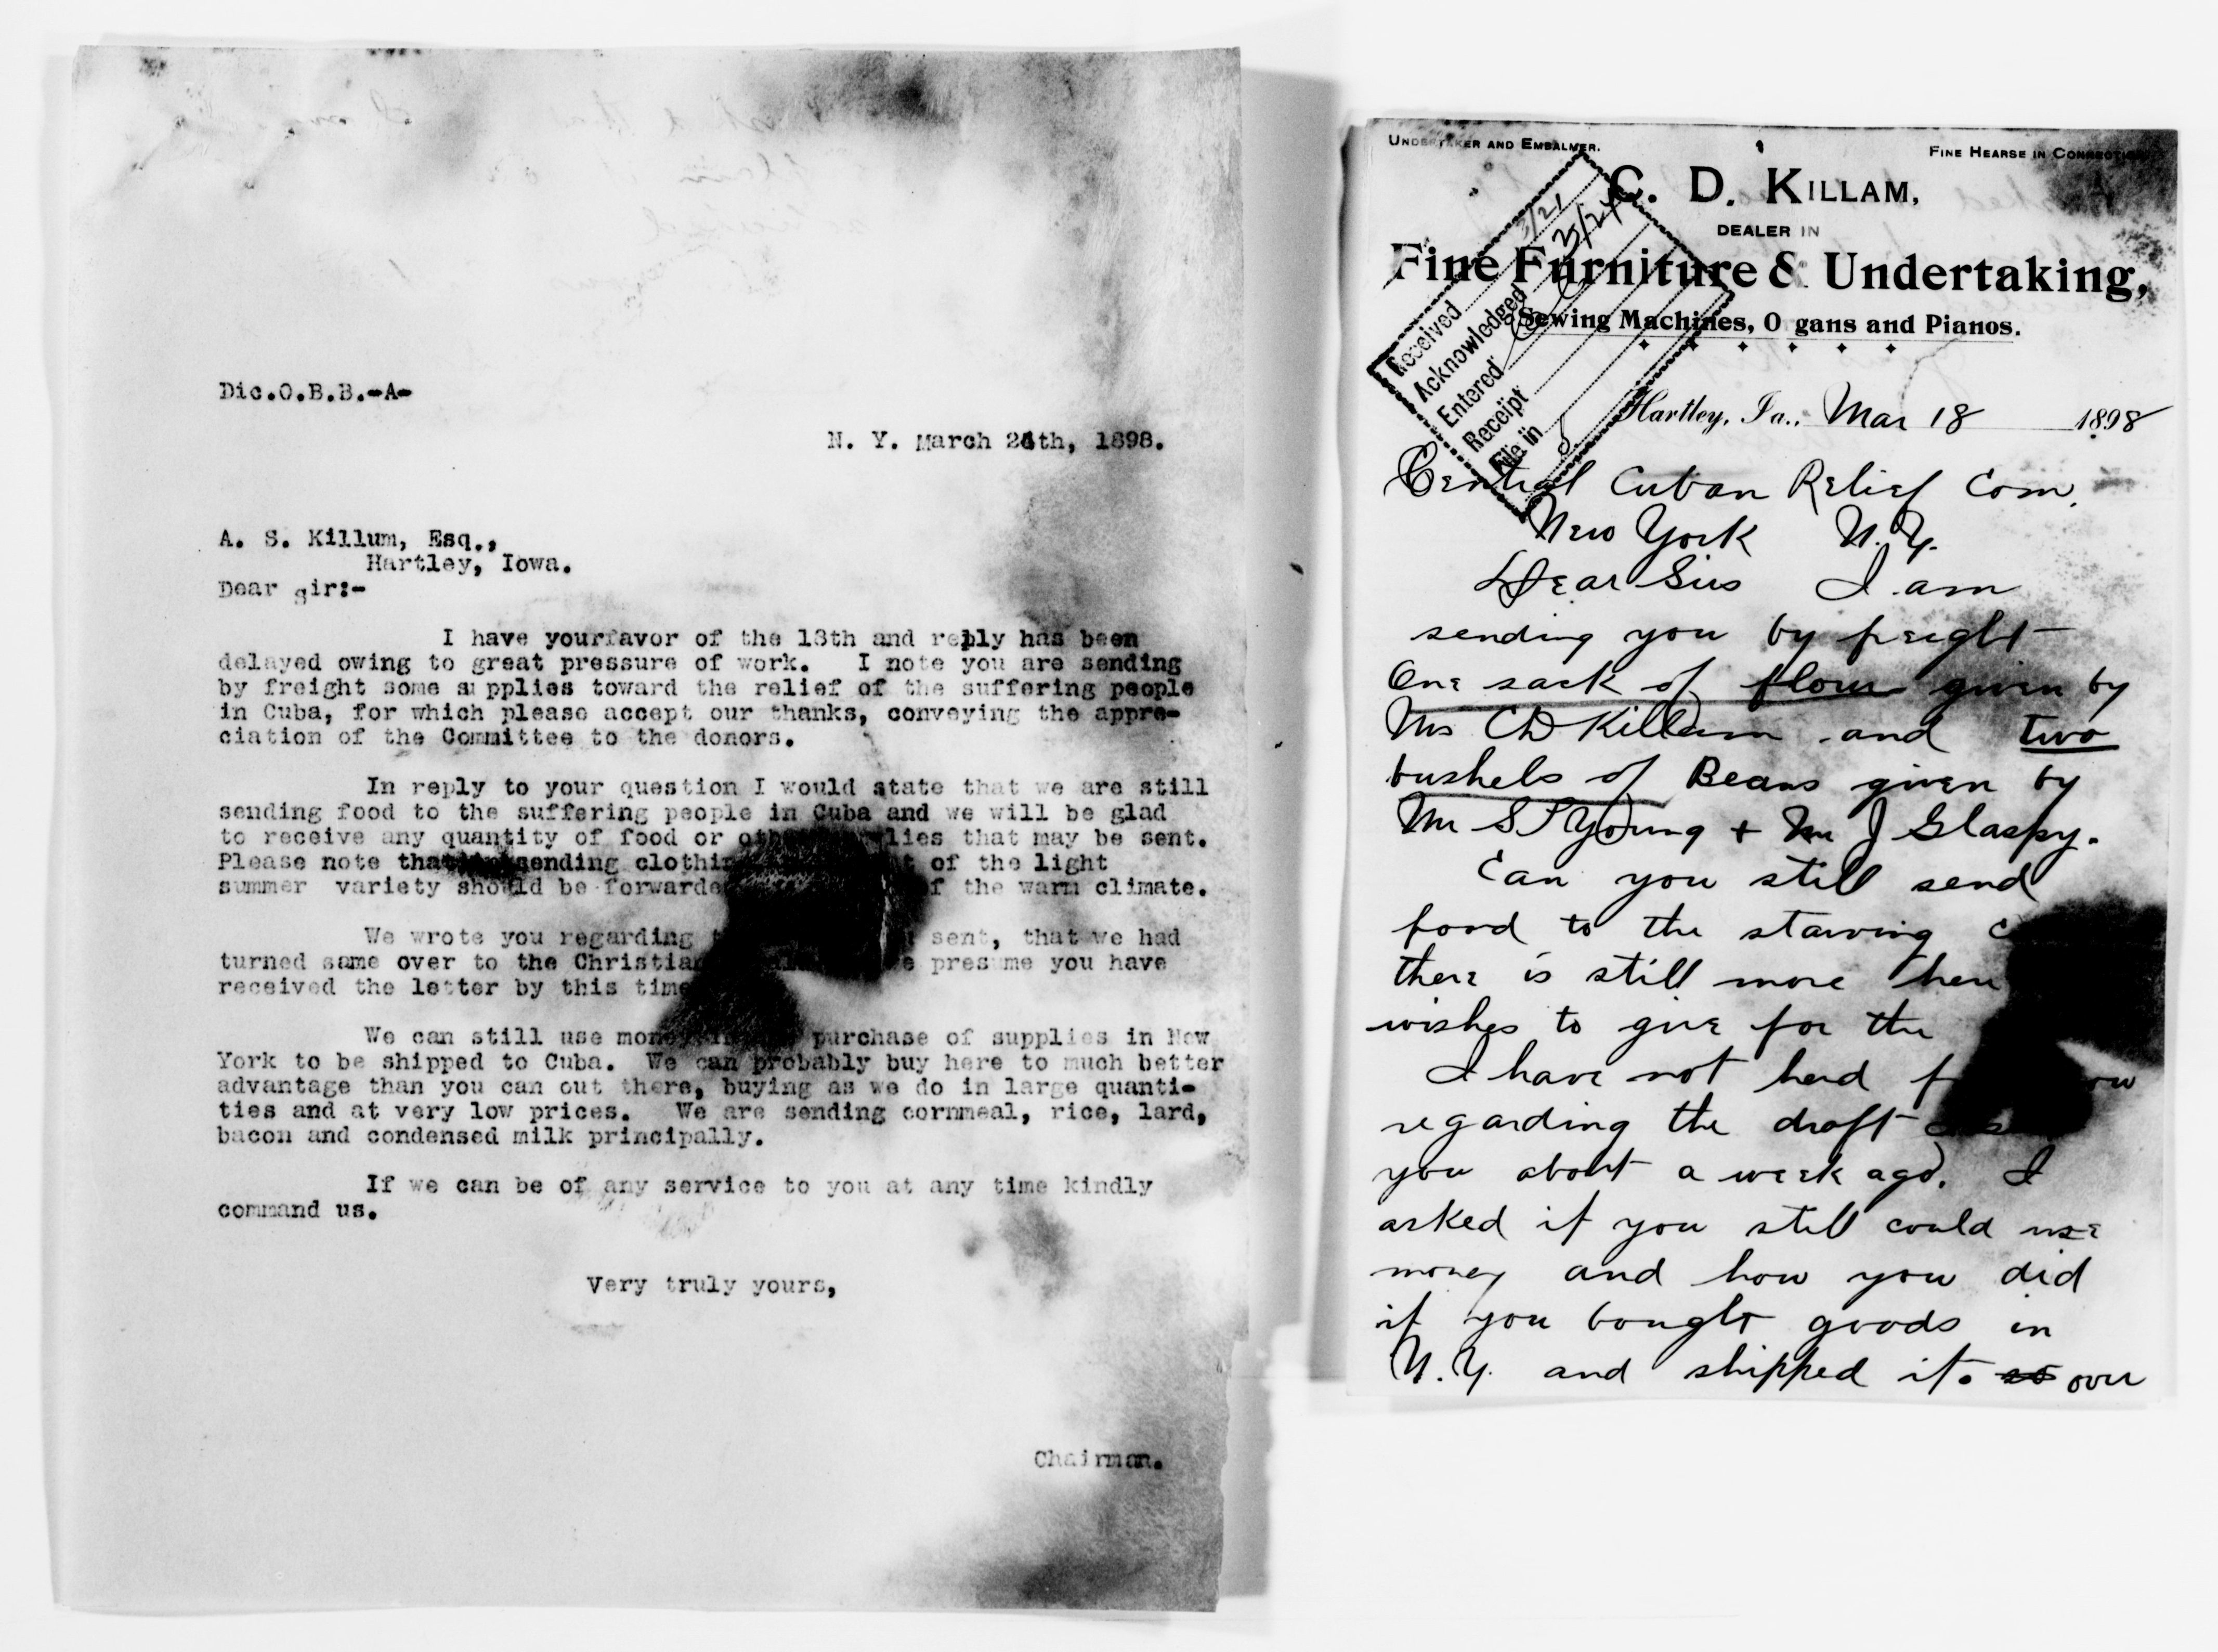 Dic.O.B.B.-A-
N. Y. March 24th, 1898.
A. S. Killum, Esq.,
Hartley, Iowa.
Dear Sir:-
I have yourfavor of the 18th and reply has been
delayed owing to great pressure of work. I note you are sending
by freight some supplies toward the relief of the suffering people
in Cuba, for which please accept our thanks, conveying the appre-
ciation of the Committee to the donors.
In reply to your question I would state that we are still
sending food to the suffering people in Cuba and we will be glad
to receive any quantity of food or lies that may be sent.
Please note that sending of the light
summer variety should be of the warm climate.
We wrote you regarding sent, that we had
turned same over to the Christian presume you have
received the letter by this time
We can still use money purchase of supplies in New
York to be shipped to Cuba. We can probably buy here to much better
advantage than you can out there, buying as we do in large quanti-
ties and at very low prices. We are sending cornmeal, rice, lard,
bacon and condensed milk principally.
If we can be of any service to you at any time kindly
command us.
Very truly yours,
Chairman.
UNDERTAKER AND EMBALMER.
FINE HEARSE IN CONNECTION
C. D. KILLAM,
DEALER IN
Fine Furniture & Undertaking,
Sewing Machines, O gans and Pianos.
Received 3/21
Acknowledged 3/24
Entered
Receipt
File in
Hartley, Ia., Mar 18 1898
Central Cuban Relief Com.
New York N.Y.
Dear Sirs I am
sending you by freight
One sack of flour given by
Mrs CD Killam and two
bushels of Beans given by
Mr S Young + Mr J Glaspy.
Can you still send
food to the starving
there is still more here
wishes to give for the
I have not herd
regarding the draft
you about a week ago. I
asked if you still could use
money and how you did
if you bought goods in
N.Y. and shipped it. over